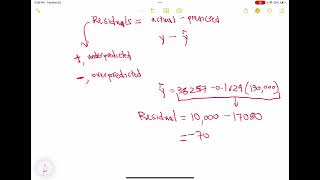 Residuals = actual - predicted
y - ŷ
+, underpredicted
-, overpredicted
ŷ = 38257 - 0.1629 (130,000)
Residual = 10,000 - 17080
= -70